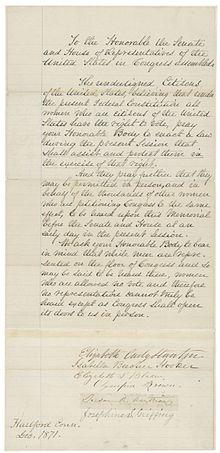 To the Honorable the Senate
and House of Representatives of the
United States in Congress Assembled.
The undersigned, Citizens
of the United States, believing that under
the present Federal Constitution all
women who are citizens of the United
States have the right to vote, pray
your Honorable Body to enact a law
during the present Session that
shall assist and protect them in
the exercise of that right.
And they pray further that they
may be permitted in person, and in
behalf of the thousands of other women
who are petitioning Congress to the same
effect, to be heard upon this Memorial
before the Senate and House at an
early day in the present session.
We ask your Honorable Body to bear
in mind that while men are represented
on the floor of Congress and so
may be said to be heard there, women
who are allowed no vote and therefore
no representation cannot truly be
heard except as Congress shall open
its doors to us in person.
Elizabeth Cady Stanton
Isabella Beecher Hooker
Elizabeth L Bladen
Olympia Brown
Susan B. Anthony
Josephine S. Griffing
Hartford Conn.
Dec. 1871.